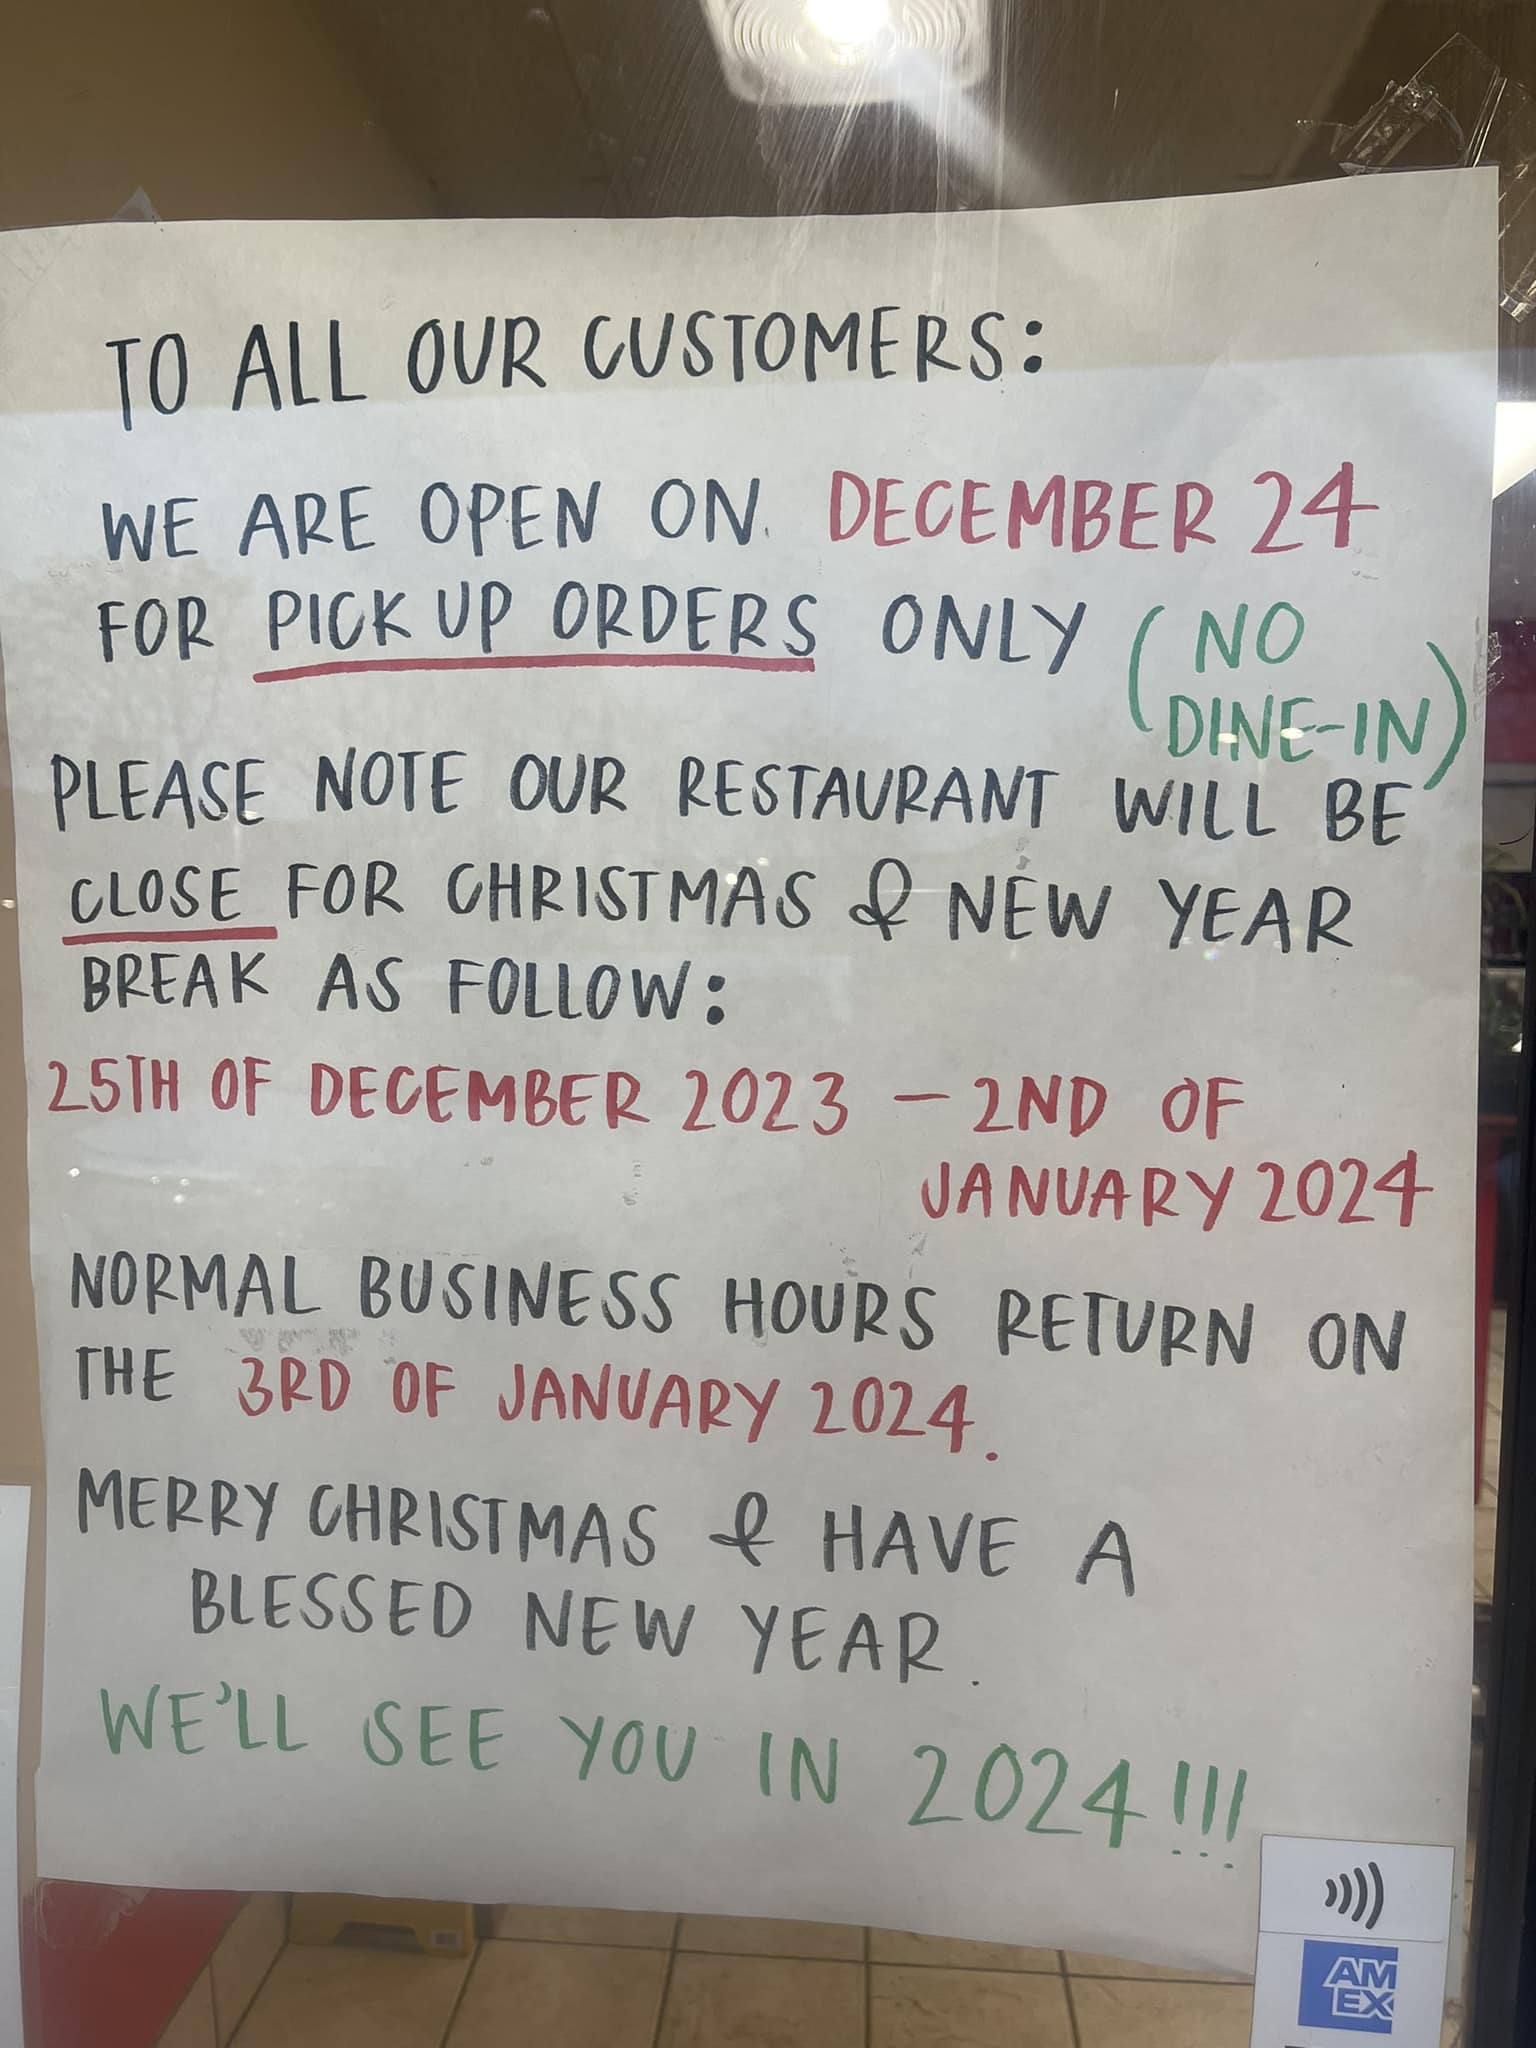 TO ALL OUR CUSTOMERS:
WE ARE OPEN ON DECEMBER 24
FOR PICK UP ORDERS ONLY (NO
DINE-IN)
PLEASE NOTE OUR RESTAURANT WILL BE
CLOSE FOR CHRISTMAS & NEW YEAR
BREAK AS FOLLOW:
25TH OF DECEMBER 2023 - 2ND OF
JANUARY 2024
NORMAL BUSINESS HOURS RETURN ON
THE 3RD OF JANUARY 2024.
MERRY CHRISTMAS & HAVE A
BLESSED NEW YEAR.
WE'LL SEE YOU IN 2024!!!
AM
EX